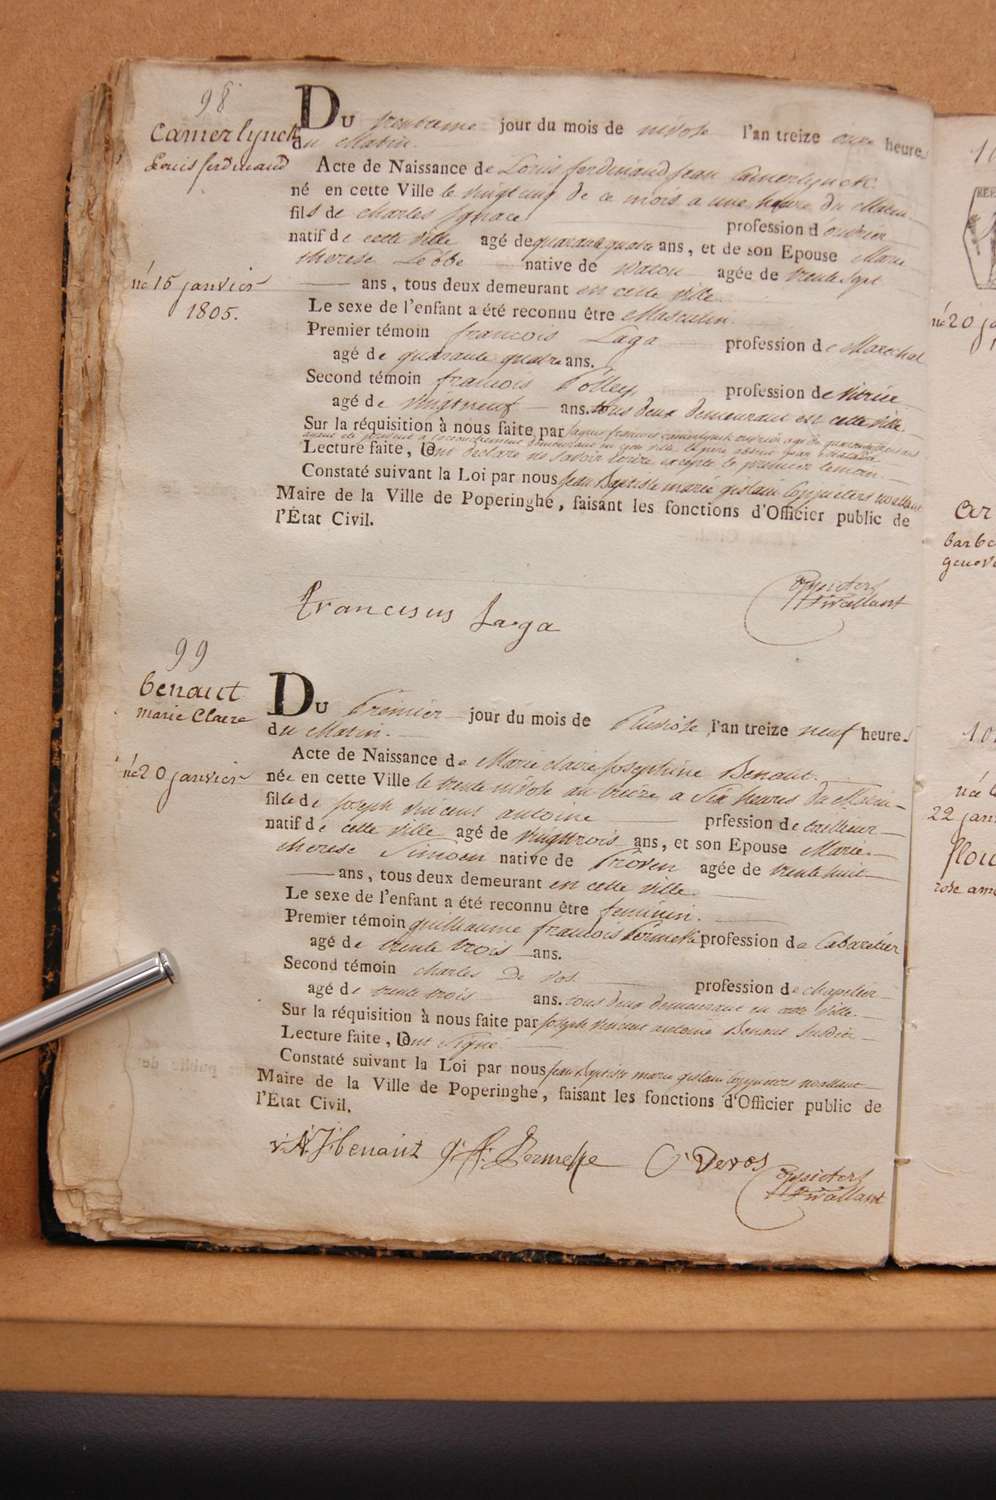 98
Camerlynck
Louis ferdinand
né 15 janvier
1805.
Du trentieme jour du mois de nivose l'an treize onze heures
du Matin.
Acte de Naissance de Louis ferdinand jean Camerlynck
né en cette Ville le vingt cinq de ce mois a une heure du Matin
fils de charles Ignace profession d ouvrier
natif de cette ville agé de quarante quatre ans, et de son Epouse Marie
therese Lebbe native de watou agée de trente sept
ans, tous deux demeurant en cette ville.
Le sexe de l'enfant a été reconnu être Masculin.
Premier témoin francois Laga profession de Marechal
agé de quarante quatre ans.
Second témoin francois profession de
agé de vingt neuf ans. tous deux demeurant en cette ville.
Sur la réquisition à nous faite par jaques francois camerlynck ouvrier agé de
Lecture faite, ont declaré ne savoir ecrire excepté le premier temoin.
Constaté suivant la Loi par nous jean Baptiste marie gislain Coppieters wallant
Maire de la Ville de Poperinghe, faisant les fonctions d'Officier public de
l'État Civil.
Franciscus Laga
Coppieters
wallant
99
benaut
marie Claere
né 20 janvier
Du Premier jour du mois de Pluviose l'an treize neuf heures
du Matin.
Acte de Naissance de Marie claire josephine Benaut.
née en cette Ville le trente nivose an treize a six heures du Matin
fille de joseph vincent antoine prfession de tailleur
natif de cette ville agé de vingt trois ans, et son Epouse Marie
therese Simoen native de Proven agée de trente huit
ans, tous deux demeurant en cette ville.
Le sexe de l'enfant a été reconnu être feminin.
Premier témoin guilliaume francois Permeke profession de Cabaretier
agé de trente trois ans.
Second témoin charles De vos profession de chapelier
agé de trente trois ans. tous deux demeurant en cette ville.
Sur la réquisition à nous faite par joseph vincent antoine Benaut susdit
Lecture faite, ont signé.
Constaté suivant la Loi par nous jean Baptiste marie gislain Coppieters wallant
Maire de la Ville de Poperinghe, faisant les fonctions d'Officier public de
l'État Civil.
benaut Permeke C Devos
Coppieters
wallant
né 20
barbe
22 jan
rose